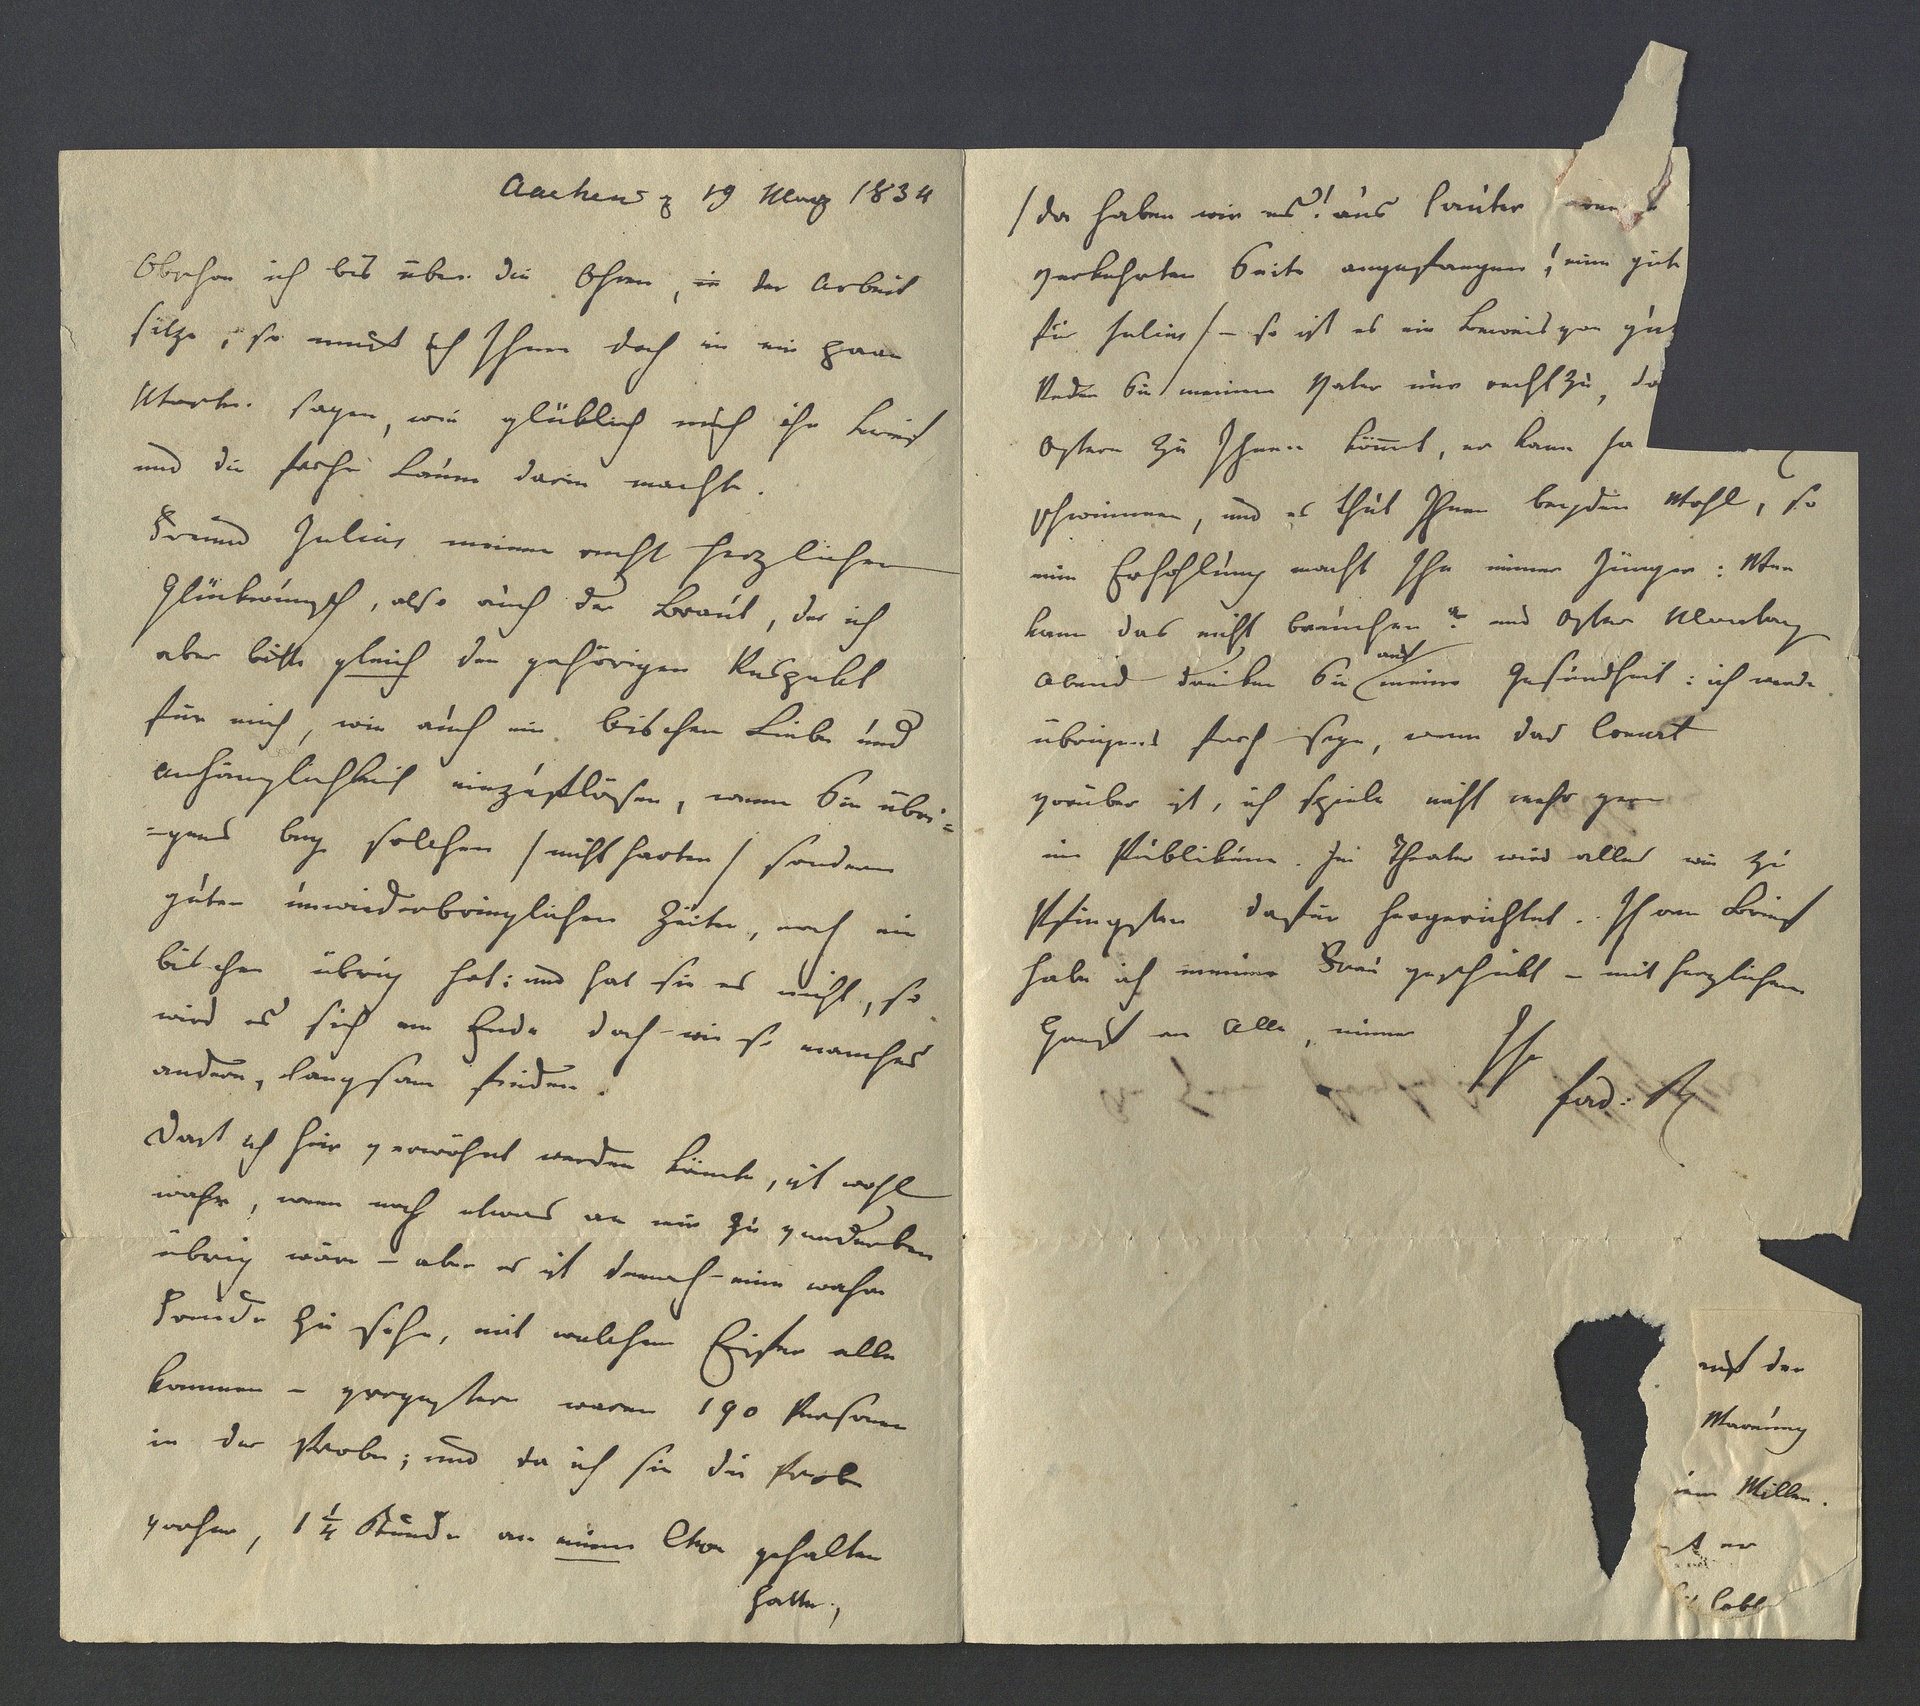 Aachen d 19 März 1834
Obschon ich bis über die Ohren, in der Arbeit
sitze, so muß ich Ihnen doch in ein paar
Worte sagen, wie glüklich mich ihr Brief
und die frohe Laune darin machte.
Freund Julius meinen recht herzlichen
Glückwunsch, also auch der Braut, der ich
aber bitte gleich den gehörigen Respekt
für mich, wie auch ein bischen Liebe und
Anhänglichkeit einzuflößen, wenn Sie übri=
=gens bey solchen /nicht harten/ sondern
guten unwiederbringlichen Zeiten, noch ein
bischen übrig hat: und hat sie es nicht, so
wird es sich am Ende doch wie so manches
andere, langsam finden.
Daß ich hier verwöhnt werden könnte, ist wohl
wahr, wenn noch etwas an mir zu verderben
übrig wäre – aber es ist dennoch eine wahre
Freude zu sehn, mit welchem Eifer alle
kommen – vorgestern waren 190 Personen
in der Probe; und da ich sie die Probe
vorher, 1 1/4 Stunde an einem Chor gehalten
hatte,
/da haben wir es! aus lauter
verkehrten Seite angefangen! eine gute
für Julius/ – so ist es ein Beweis von gut
Reden Sie meinem Vater nur recht zu, da
Ostern zu Ihnen kömmt, er kann ja
schwimmen, und es thut Ihnen beyden Wohl, so
eine Erhohlung macht Ihn immer Jünger: Wer
kann das nicht brauchen? und Oster Montag
Abend trinken Sie auf meine Gesundheit: ich werde
übrigens froh seyn, wenn das Concert
vorüber ist, ich spiele nicht mehr gern
im Publikum. Im Theater wird alles wie zu
Pfingsten dafür hergerichtet. Ihren Brief
habe ich meiner Frau geschickt – mit herzlichem
Gruß an Alle, immer
Ihr
Ferd: R
auf der
Warnung
Willen.
er